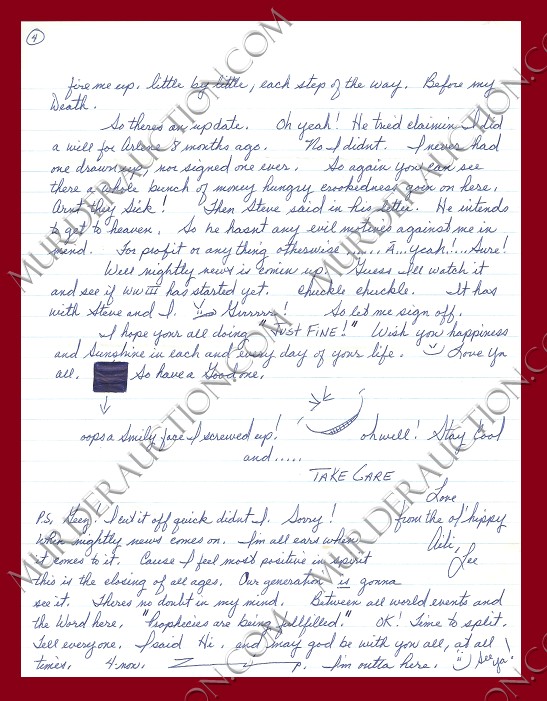 4
fire me up, little by little, each step of the way. Before my
Death.
So theres an update. Oh yeah! He tried claimin I did
a will for Arlene 8 months ago. No I didnt. I never had
one drawn up, nor signed one ever. So again you can see
there a whole bunch of money hungry crookidness goin on here.
Arnt they Sick! Then Steve said in his letter. He intends
to get to heaven. So he hasnt any evil motives against me in
mind. For profit or any thing otherwise ...... A...yeah!...Sure!
Well nightly news is comin up. Guess I'll watch it
and see if WW III has started yet. chuckle chuckle. It has
with Steve and I. Grrrrrr! So let me sign off.
I hope your all doing "JUST FINE!" Wish you happiness
and Sunshine in each and every day of your life. Love Ya
all. So have a Good one.
oops a Smily face I screwed up! oh well! Stay Cool
and.....
TAKE CARE
Love
P.S. Geez! I cut it off quick didnt I. Sorry! from the ol' hippy
When nightly news comes on. I'm all ears when
it comes to it. Cause I feel most positive in spirit Lee
this is the closing of all ages. Our generation is gonna
see it. Theres no doubt in my mind. Between all world events and
the Word here. "Prophecies are being fullfilled." OK! Time to split.
Tell everyone. I said Hi, and may god be with you all, at all
times. 4-now. I'm outta here. See ya!
MURDERAUCTION.COM